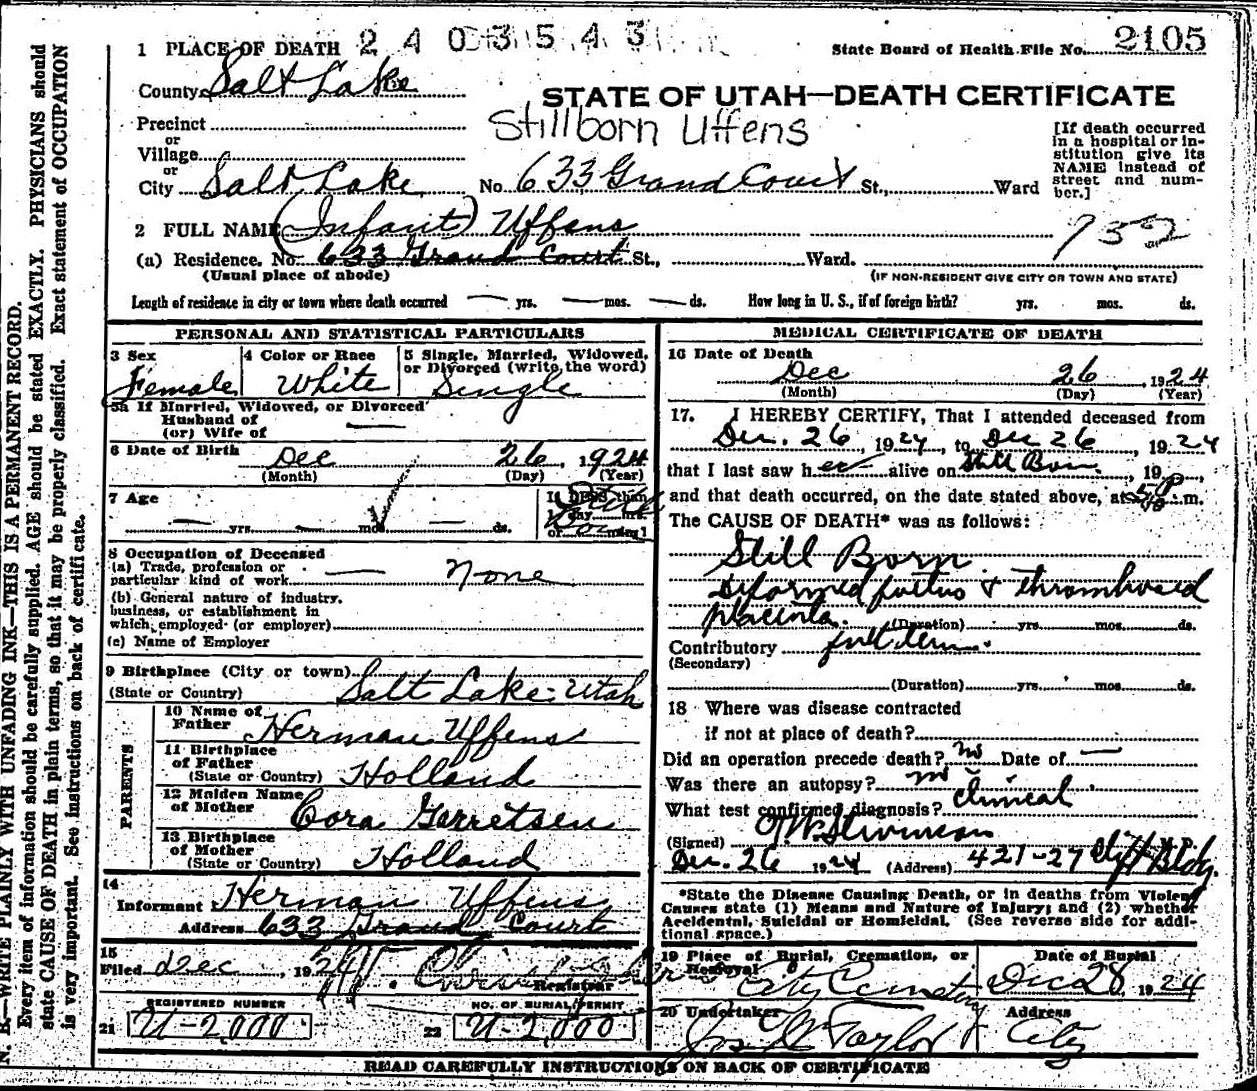 1 PLACE OF DEATH 2403543
State Board of Health File No. 2105
County Salt Lake
STATE OF UTAH—DEATH CERTIFICATE
Precinct
Stillborn Uffens
or
Village
or
City Salt Lake No. 633 Grand Court St., Ward
[If death occurred
in a hospital or in-
stitution give its
NAME instead of
street and num-
ber.]
2 FULL NAME (Infant) Uffens
(a) Residence. No. 633 Grand Court St., Ward.
(Usual place of abode) (IF NON-RESIDENT GIVE CITY OR TOWN AND STATE)
Length of residence in city or town where death occurred — yrs. — mos. — ds. How long in U. S., if of foreign birth? yrs. mos. ds.
PERSONAL AND STATISTICAL PARTICULARS
3 Sex Female
4 Color or Race White
5 Single, Married, Widowed,
or Divorced (write the word)
Single
5a If Married, Widowed, or Divorced
Husband of
(or) Wife of —
6 Date of Birth Dec 26, 1924
(Month) (Day) (Year)
7 Age — yrs. — mos. — ds.
8 Occupation of Deceased
(a) Trade, profession or
particular kind of work — None
(b) General nature of industry,
business, or establishment in
which employed (or employer)
(c) Name of Employer
9 Birthplace (City or town)
(State or Country) Salt Lake Utah
PARENTS
10 Name of
Father Herman Uffens
11 Birthplace
of Father
(State or Country) Holland
12 Maiden Name
of Mother Cora Gerretsen
13 Birthplace
of Mother
(State or Country) Holland
14
Informant Herman Uffens
Address 633 Grand Court
15
Filed Dec, 1924
Registrar
REGISTERED NUMBER
21 U-2,000
NO. OF BURIAL PERMIT
22 U-2,000
MEDICAL CERTIFICATE OF DEATH
16 Date of Death
Dec 26, 1924
(Month) (Day) (Year)
17. I HEREBY CERTIFY, That I attended deceased from
Dec. 26, 1924, to Dec 26, 1924
that I last saw her alive on Still Born, 19
and that death occurred, on the date stated above, at m.
The CAUSE OF DEATH* was as follows:
Still Born
Deformed foetus & thrombosed
placenta. (Duration) yrs. mos. ds.
Contributory full term.
(Secondary)
(Duration) yrs. mos. ds.
18 Where was disease contracted
if not at place of death?
Did an operation precede death? no Date of —
Was there an autopsy? no
What test confirmed diagnosis? Clinical
(Signed) Stevenson
Dec. 26 1924 (Address) 421-27 Clift Bldg.
*State the Disease Causing Death, or in deaths from Violent
Causes state (1) Means and Nature of Injury; and (2) whether
Accidental, Suicidal or Homicidal. (See reverse side for addi-
tional space.)
19 Place of Burial, Cremation, or
Removal City Cemetery
Date of Burial
Dec 28 1924
20 Undertaker Taylor
Address
City
READ CAREFULLY INSTRUCTIONS ON BACK OF CERTIFICATE
N. B.—WRITE PLAINLY WITH UNFADING INK—THIS IS A PERMANENT RECORD.
Every item of information should be carefully supplied. AGE should be stated EXACTLY. PHYSICIANS should
state CAUSE OF DEATH in plain terms, so that it may be properly classified. Exact statement of OCCUPATION
is very important. See instructions on back of certificate.